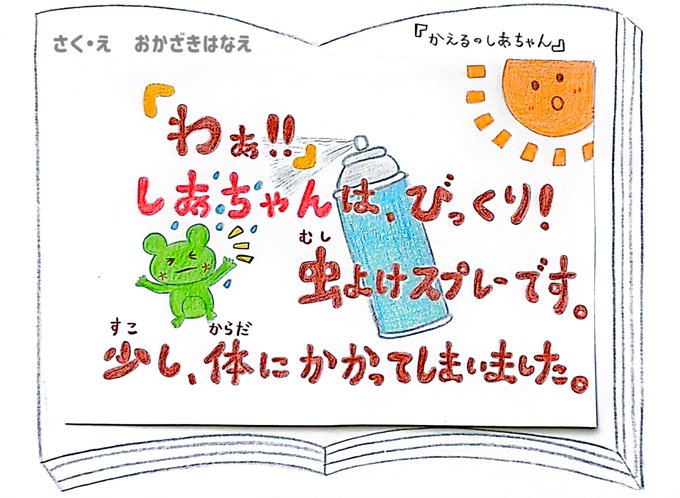 さく・え　おかざきはなえ
『かえるのしあちゃん』
『わぁ!!』
しあちゃんは、びっくり!
むし
虫よけスプレーです。
すこ　からだ
少し、体にかかってしまいました。